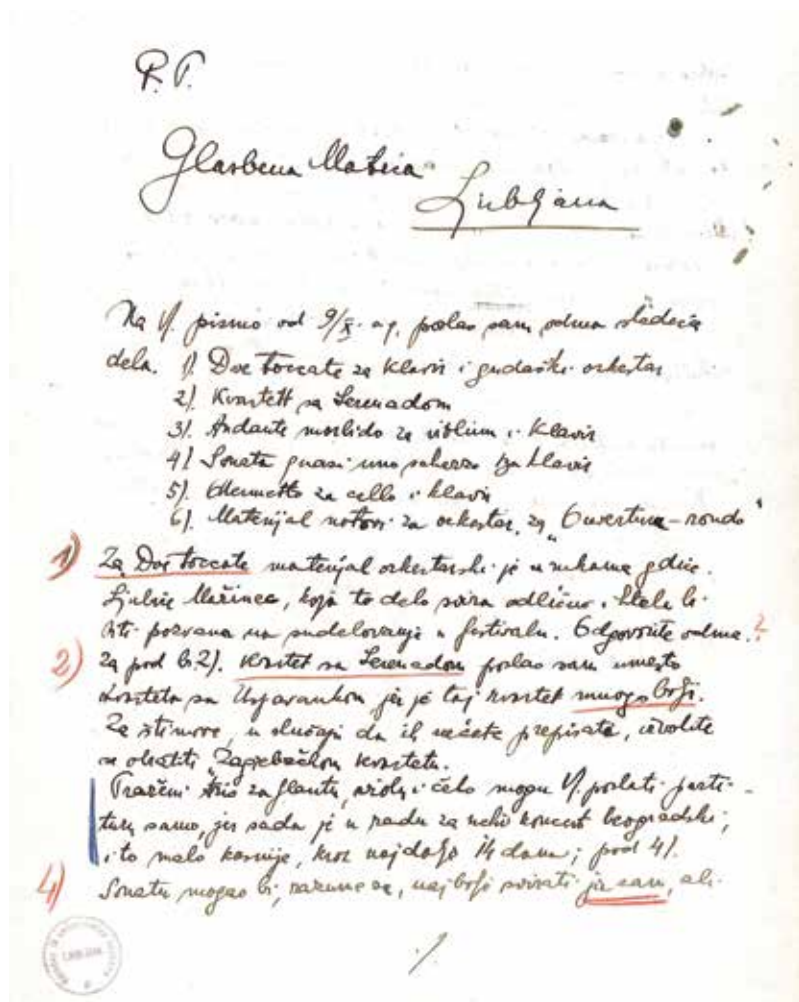 P. T.
Glasbena Matica
Ljubljana
Na V. pismo od 9/X. o.g. poslao sam odma sledeća
dela. 1). Dve toccate za klavir i gudački orkestar
2). Kvartett sa Serenadom
3). Andante morbido za violinu i klavir
4). Sonata quasi uno scherzo za klavir
5). Menuetto za cello i klavir
6). Materijal notovi za orkestar, za „Ouverture-rondo“
1) Za Dve toccate materijal orkestarski je u rukama gdice.
Ljubice Mažinec, koja to delo svira odlično i htela bi
biti pozvana na sudelovanje u festivalu. Odgovorite odma. ?
2) Za pod b. 2). Kvartet sa Serenadom poslao sam umesto
kvarteta sa Uspavankom jer je taj kvartet mnogo bolji.
Za štimove, u slučaju da ih nećete prepisati, izvolite
se obratiti „Zagrebačkom kvartetu.
Traženi trio za flautu, violu i čelo mogu V. poslati parti-
turu samo, jer sada je u radu za neki koncert beogradski;
i to malo kasnije, kroz najdalje 14 dana; pod 4).
4) Sonatu mogao bi, razume se, najbolji svirati ja sam, ali
./.
LJUBLJANA